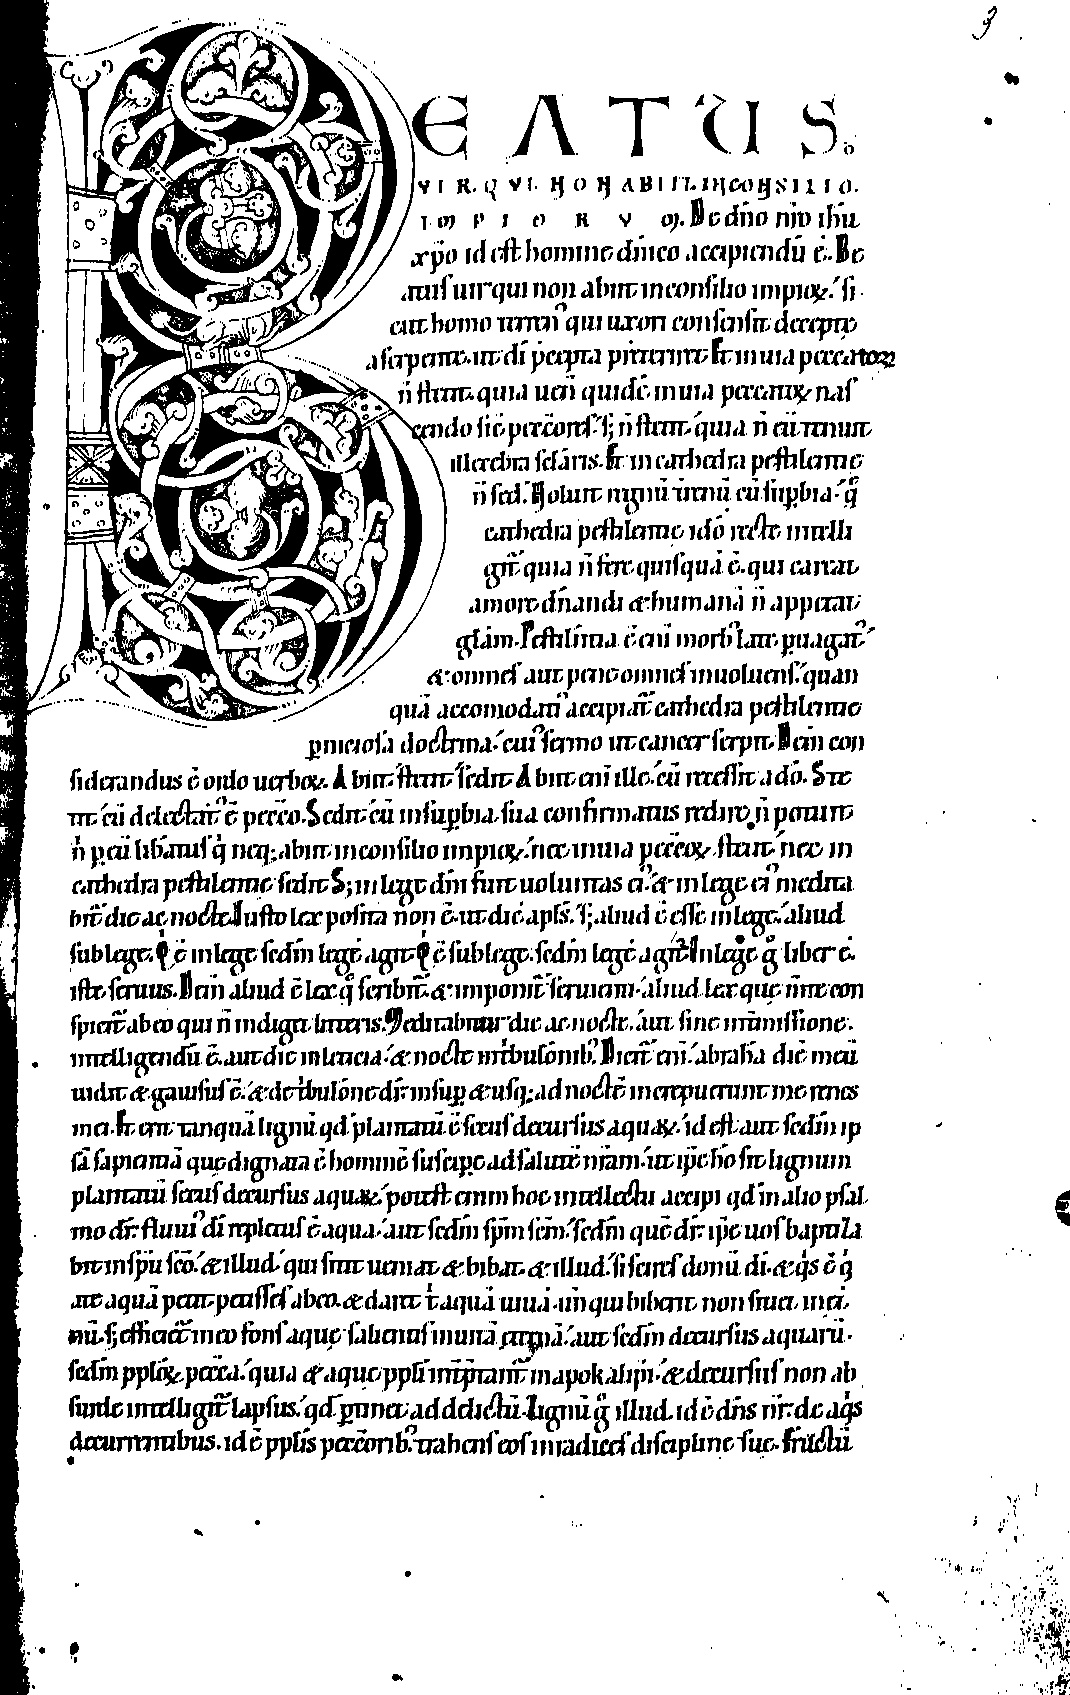 3
BEATUS.
VIR. QVI. NON ABIIT. IN CONSILIO.
IMPIORVM. De dn̄o nr̄o ih̄u
xp̄o id est homine dn̄ico accipiendū ē. Be
atus uir qui non abiit in consilio impioꝝ. si
cut homo terren⁹ qui uxori consensit decepte
a serpente. ut di p̄cepta pret̄iret. Et in uia peccatoꝝ
n̄ stetit. quia uen̄ quidē in uia peccatoꝝ nas
cendo sic̄ peccōres. s; n̄ stetit. quia n̄ eū tenuit
illecebra sclāris. Et in cathedra pestilentie
n̄ sed̄. Noluit regnū t̄renū cū suꝑbia. q̄
cathedra pestilentie ideō recte intelli
git̄ quia n̄ fere quisquā ē. qui careat
amore dn̄andi & humanā n̄ appetat
glām. Pestiln̄tia ē eni morb⁹ late ꝑuagat⁹
& omnes aut pene omnes inuoluens. quan
quā accomodati⁹ accipiat̄ cathedra pestilentie
ꝑniciosa doctrina. cui⁹ sermo ut cancer serpit. Dein̄ con
siderandus ē ordo uerboꝝ. Abiit. stetit. sedit. Abiit eni ille. cū recessit a dō. Ste
tit. cū delectat⁹ ē peccō. Sedit. cū in suꝑbia sua confirmatus redire n̄ potuit
n̄ ꝑ eū lib̄atus q̄ neq; abiit in consilio impioꝝ. nec in uia peccōꝝ stetit. nec in
cathedra pestilentie sedit. S; in lege dn̄i fuit uoluntas ei⁹. & in lege ei⁹ medita
bit̄ die ac nocte. Iusto lex posita non ē. ut dic̄ apl̄s. S; aliud ē esse in lege. aliud
sub lege. Q̄ ē in lege sedm̄ legē agit. Q̄ ē sub lege. sedm̄ legē agit̄. In lege g̊ liber ē.
iste seruus. Dein̄ aliud ē lex q̄ scribit̄ & imponit̄ seruienti. aliud lex que m̄te con
spicit̄ ab eo qui n̄ indiget litteris. Meditabitur die ac nocte. aut sine intm̄issione.
intelligendū ē. aut die in leticia. & nocte in t̄bulōnib⁹. Dicit̄ eni. abrahā diē meū
uidit & gauisus ē. & de t̄bulōne dr̄. insuꝑ & usq; ad noctē increpuerunt me renes
mei. Et erit tanquā lignū qd̄ plantatū ē secus decursus aquaꝝ. id est aut sedm̄ ip
sā sapientiā que dignata ē hominē suscipe ad salutē nr̄am. ut ip̄e ho sit lignum
plantatū secus decursus aquaꝝ. potest enim hoc intellectu accipi qd̄ in alio psal
mo dr̄. fluui⁹ di repletus ē aqua. aut sedm̄ sp̄m scm̄. sedm̄ quē dr̄. ip̄e uos baptiza
bit in sp̄u scō. & illud. qui sitit ueniat & bibat. & illud. si scires donū di. & q̄s ē q̄
a te aquā petit. petisses ab eo. & daret t̄ aquā uiuā. un̄ qui biberit non sitiet in et̄
nū. s; efficiet̄ in eo fons aque salientis in uitā et̄nā. aut sedm̄ decursus aquarū.
sedm̄ pploꝝ pecc̄a. quia & aque ppl̄i int̄p̄tant̄ in apokalipsi. & decursus non ab
surde intelligit̄ lapsus. qd̄ ꝑtinet ad delictū. Lignū g̊ illud. id ē dn̄s nr̄. de aq̄s
decurrentibus. id ē ppl̄is peccōrib⁹ trahens eos in radices discipline sue. Fructū